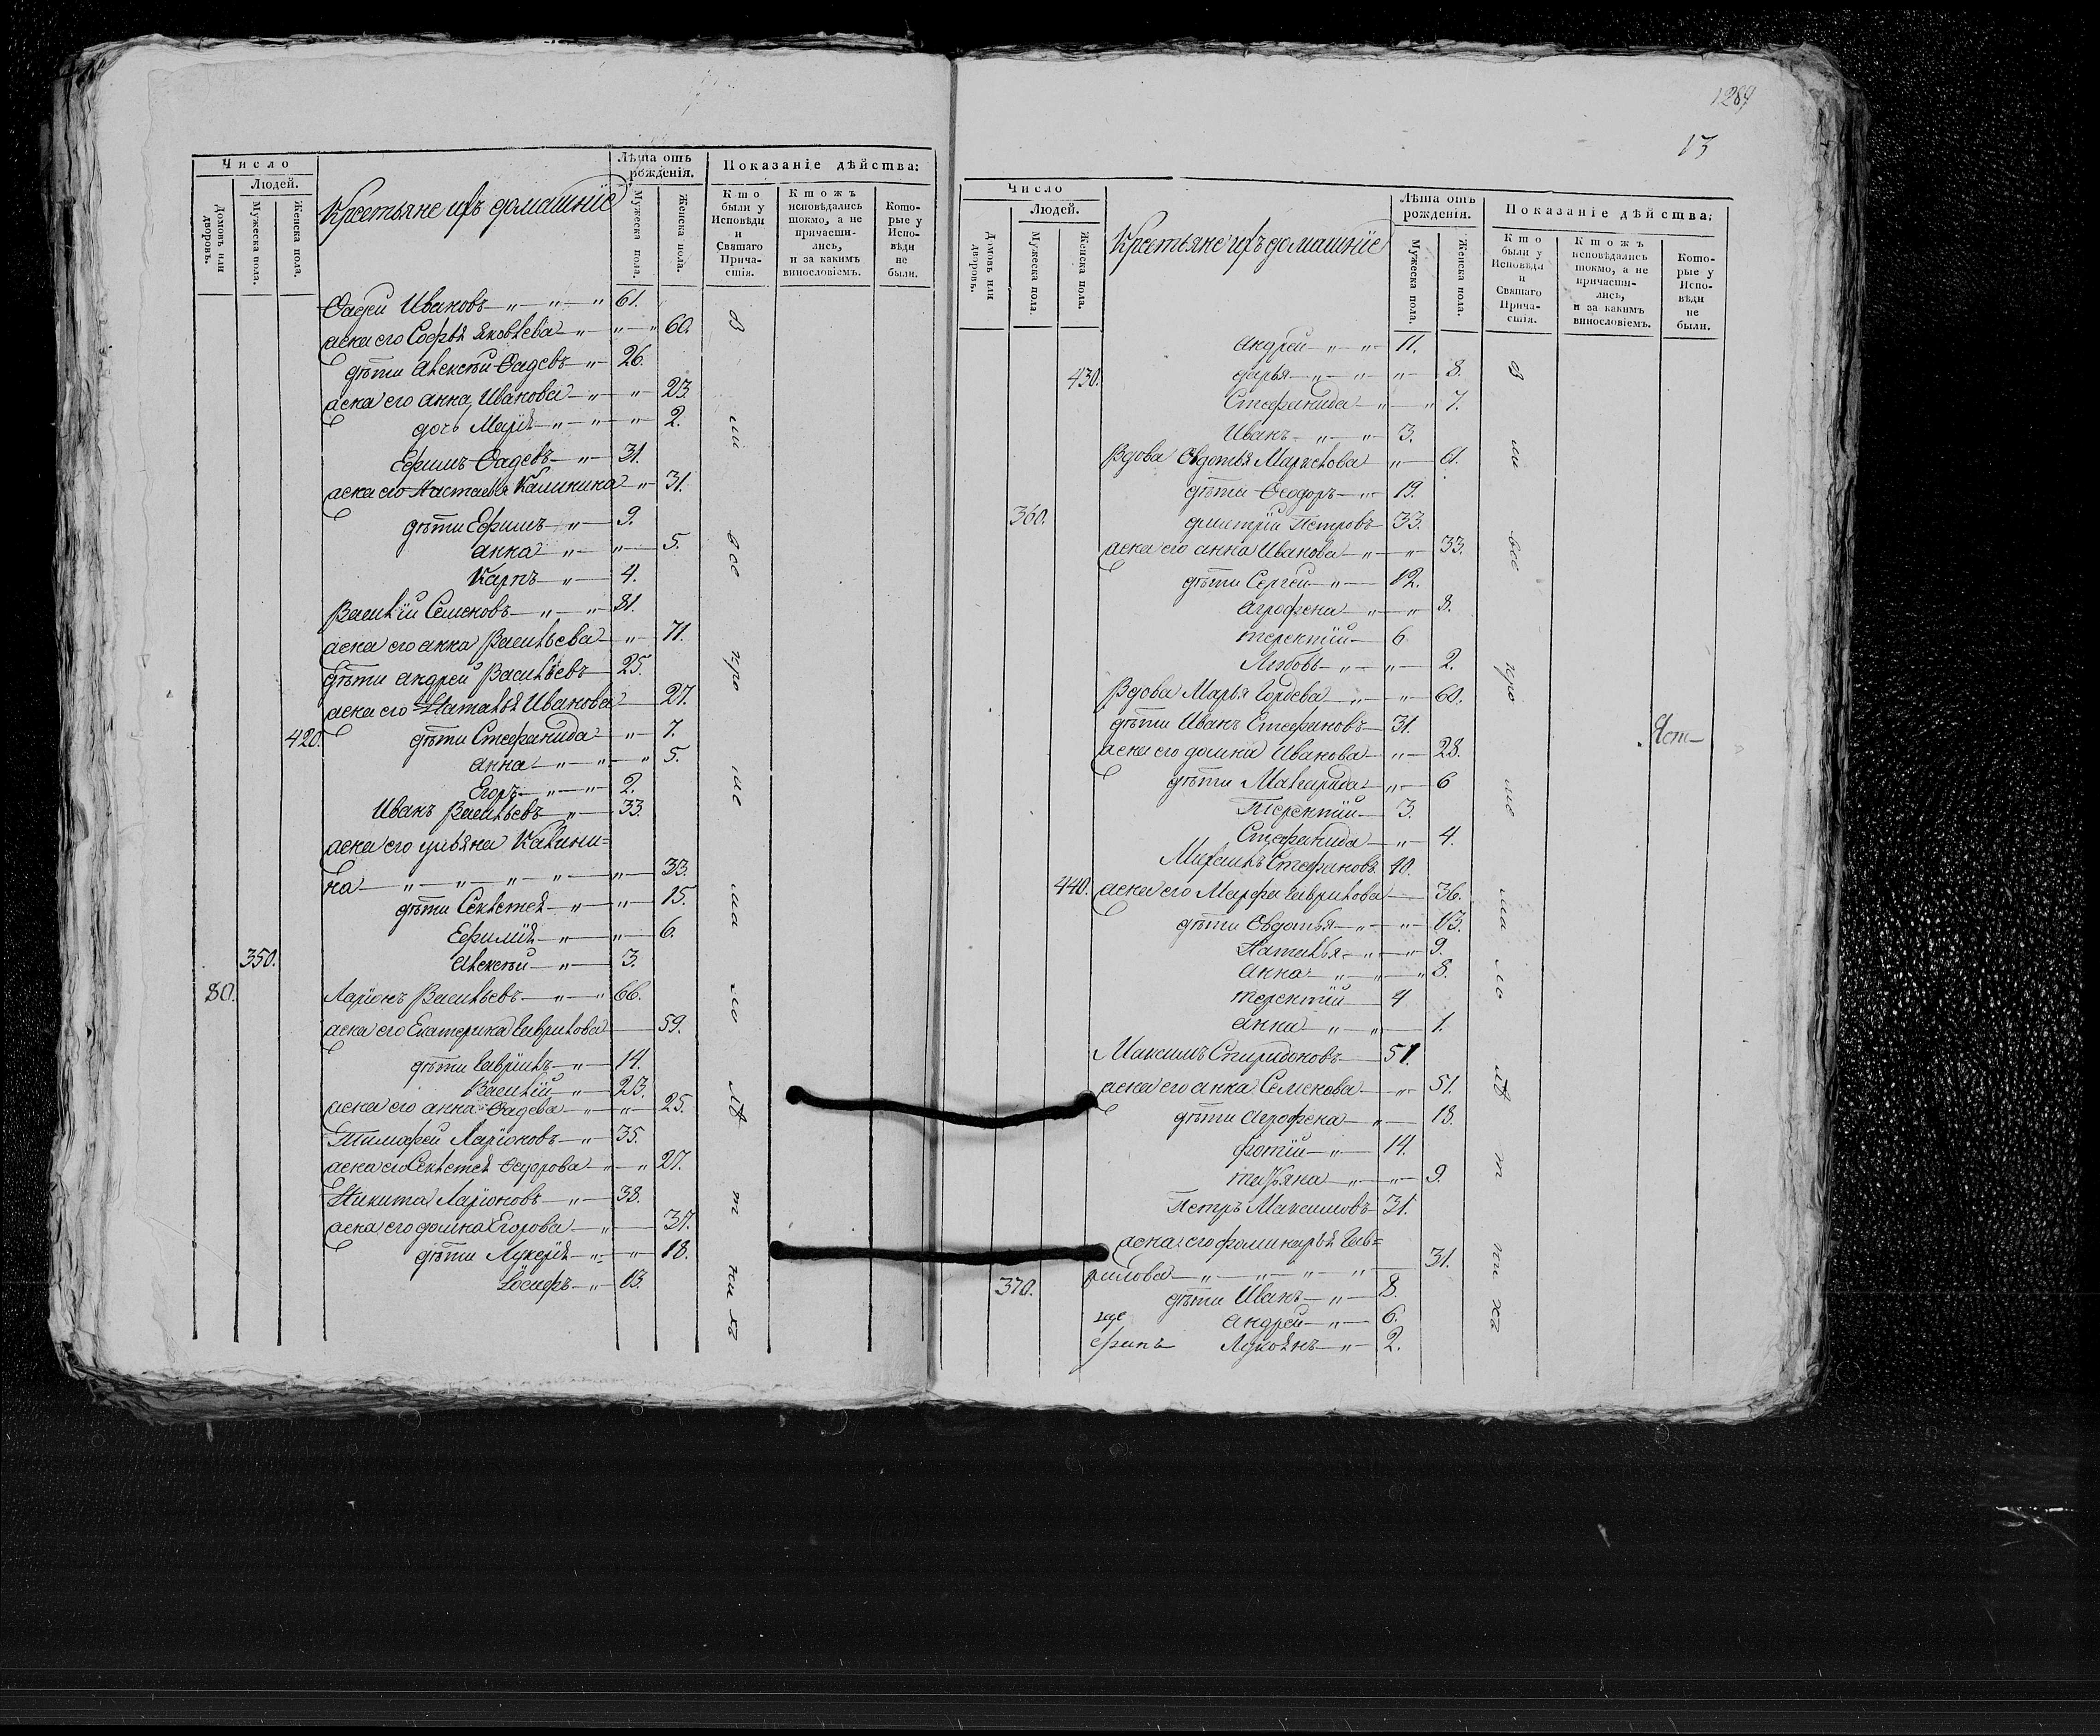 Число
Людей.
Домовъ или дворовъ.
Мужеска пола.
Женска пола.
Крестьяне ихъ домашніе
Лѣта отъ рожденія.
Мужеска пола.
Женска пола.
Показаніе дѣйства:
Кто были у Исповѣди и Святаго Причастія.
Ктожъ исповѣдались токмо, а не причастились, и за какимъ винословіемъ.
Которые у Исповѣди не были.
Фадей Ивановъ 61.
жена его Софья Яковлева 60.
дѣти Алексѣй Фадевъ 26.
жена его Анна Иванова 23.
дочь Марія 2.
Ефимъ Фадевъ 31.
жена его Настасья Калинина 31.
дѣти Ефимъ 9.
Анна 5.
Карпъ 4.
Василій Семеновъ 81.
жена его Анна Васильева 71.
дѣти Андрей Васильевъ 25.
жена его Наталья Иванова 27.
420. дѣти Стефанида 7.
Анна 5.
Егоръ 2.
Иванъ Васильевъ 33.
жена его Ульяна Калини=
на 33.
дѣти Секлетея 15.
Ефимія 6.
350. Алексѣй 3.
80. Ларіонъ Васильевъ 66.
жена его Екатерина Гаврилова 59.
дѣти Гавріилъ 14.
Василій 23.
жена его Анна Фадева 25.
Тимофей Ларіоновъ 35.
жена его Секлетея Федорова 27.
Никита Ларіоновъ 38.
жена его Домна Егорова 37.
дѣти Лукерія 18.
Іосифъ 13.
1289
13
Число
Людей.
Домовъ или дворовъ.
Мужеска пола.
Женска пола.
Крестьяне ихъ домашніе
Лѣта отъ рожденія.
Мужеска пола.
Женска пола.
Показаніе дѣйства:
Кто были у Исповѣди и Святаго Причастія.
Ктожъ исповѣдались токмо, а не причастились, и за какимъ винословіемъ.
Которые у Исповѣди не были.
Андрей 11.
430. Дарья 8.
Стефанида 7.
Иванъ 3.
Вдова Овдотья
дѣти Феодоръ 19.
360. Дмитрій Петровъ 33.
жена его Анна Иванова 33.
дѣти Сергей 12.
Агрофена 8.
Терентій 6
Любовь 2.
Вдова Марья Гордева 60.
дѣти Иванъ Стефановъ 31.
жена его Домна Иванова 28.
дѣти 6
Терентій 3.
Стефанида 4.
Михаилъ Стефановъ 40.
440. жена его Марфа Гаврилова 36.
дѣти Овдотья 13.
Наталья 9.
Анна 8.
Терентій 4
Анна 1.
Максимъ Спиридоновъ 51.
жена его Анна Семенова 51.
дѣти Агрофена 18.
Фотій 14.
Татьяна 9.
Петръ Максимовъ 31.
жена его Фоминарья Гав=
рилова 31.
370. дѣти Иванъ 8.
Андрей 6.
Лукоянъ 2.